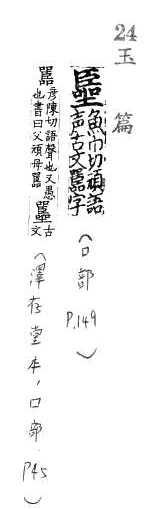 24
玉篇
𡄣魚巾切頑語
声古文嚚字
(口部 P.149)
嚚彦陳切語聲也又愚
也書曰父頑母嚚𡄣古
文
(澤存堂本,口部,P45)